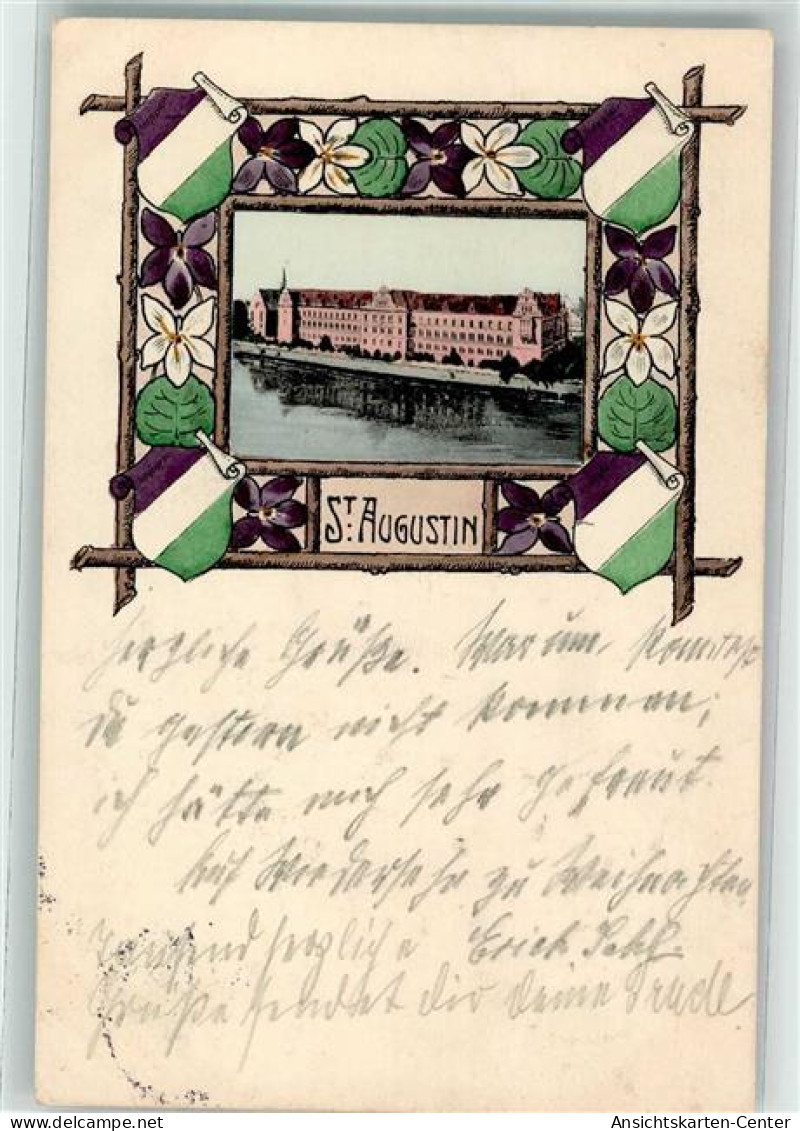 ST. AUGUSTIN
herzliche Grüße. Warum kamst
du gestern nicht kommen;
ich hätte mich sehr gefreut.
Auf Wiedersehn zu Weihnachten
Tausend herzliche Erich
Grüße sendet dir deine Trude
Ansichtskarten-Center